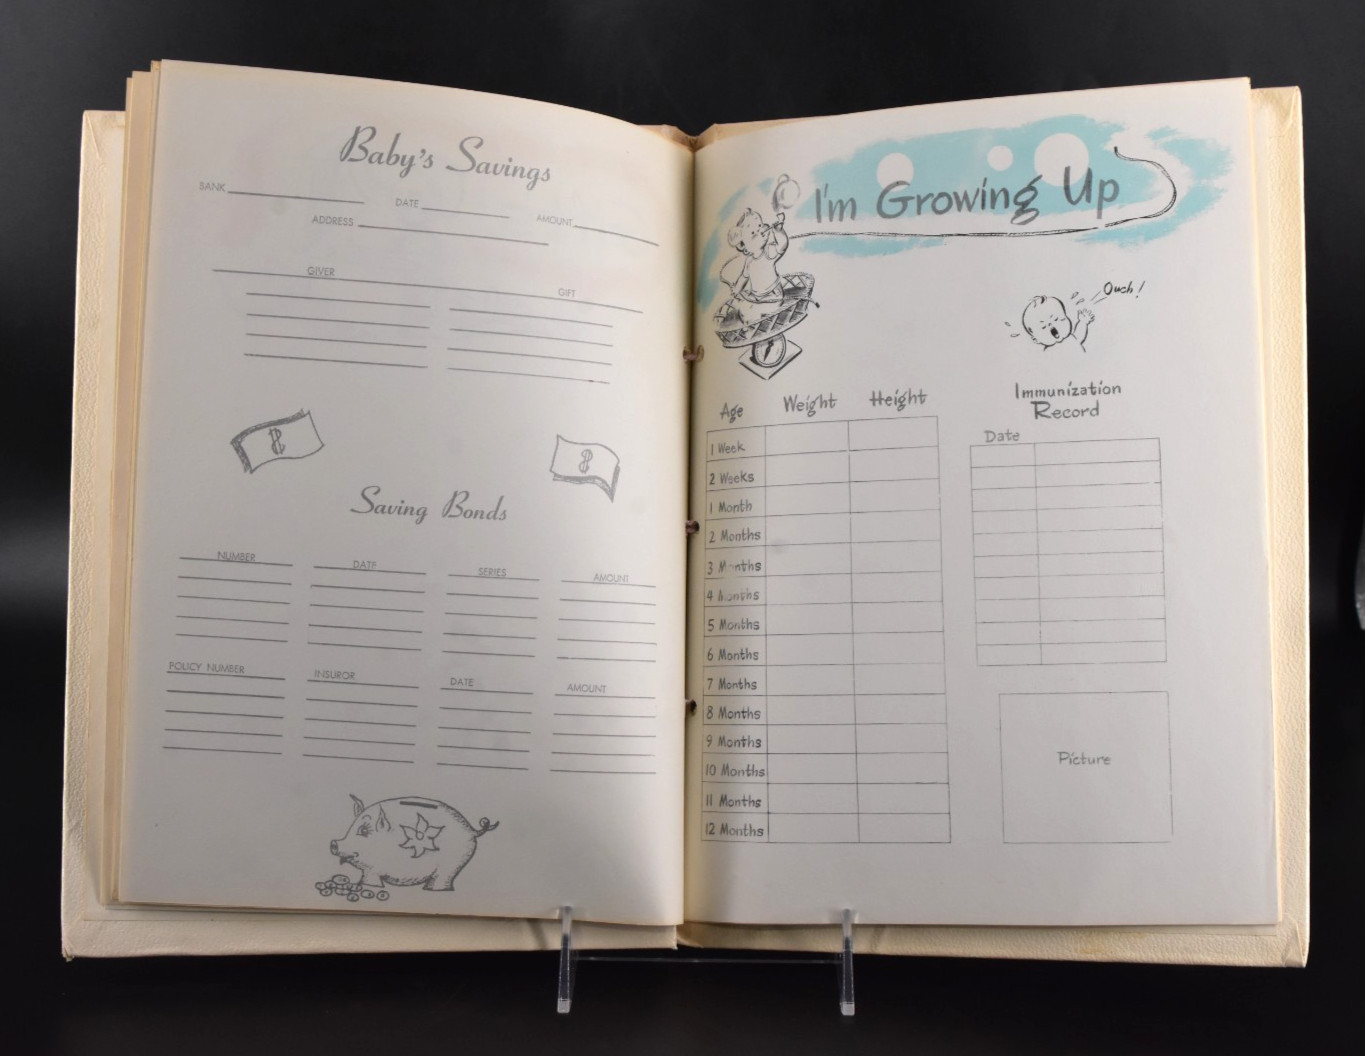 Baby's Savings
BANK DATE AMOUNT
ADDRESS
GIVER GIFT
Saving Bonds
NUMBER DATE SERIES AMOUNT
POLICY NUMBER INSUROR DATE AMOUNT
I'm Growing Up
Ouch!
Age Weight Height
1 Week
2 Weeks
1 Month
2 Months
3 Months
4 Months
5 Months
6 Months
7 Months
8 Months
9 Months
10 Months
11 Months
12 Months
Immunization
Record
Date
Picture